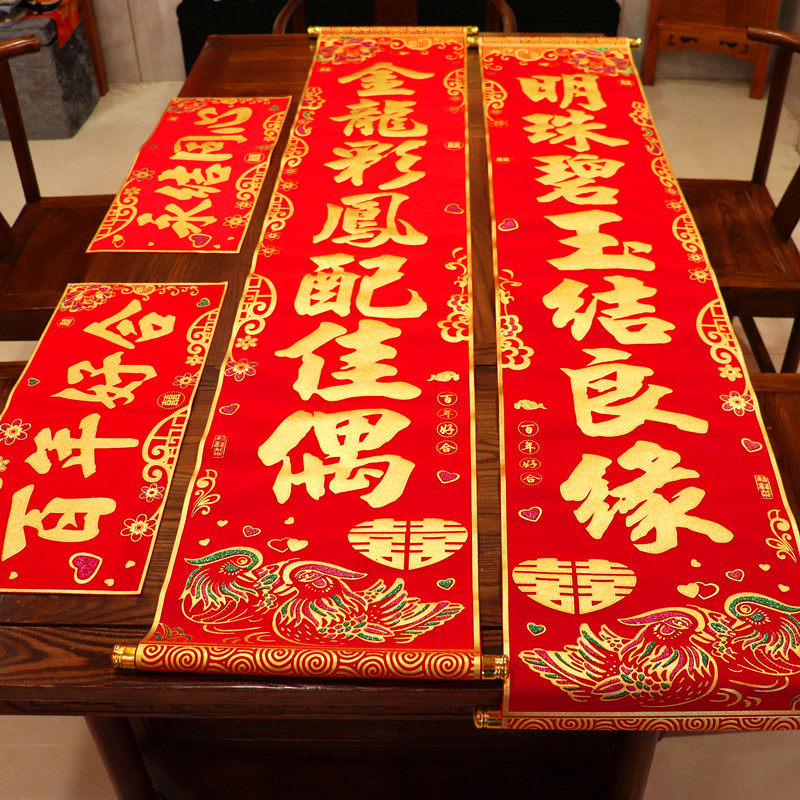 明珠碧玉结良缘
百年好合
囍
金龍彩鳳配佳偶
百年好合
囍
永结同心
百年好合
囍